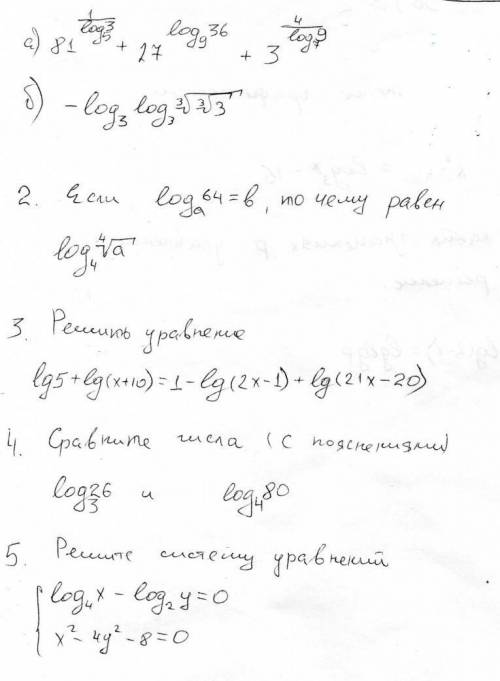 а) 81^(1/log₅3) + 27^(log₉36) + 3^(4/log₇9)
б) -log₃ log₃ ∛(∛3)
2. Если logₐ64 = b, то чему равен
log₄ ∜a
3. Решить уравнение
lg5 + lg(x+10) = 1 - lg(2x-1) + lg(21x-20)
4. Сравните числа (с пояснениями)
log₃26 и log₄80
5. Решите систему уравнений
log₄x - log₂y = 0
x² - 4y² - 8 = 0